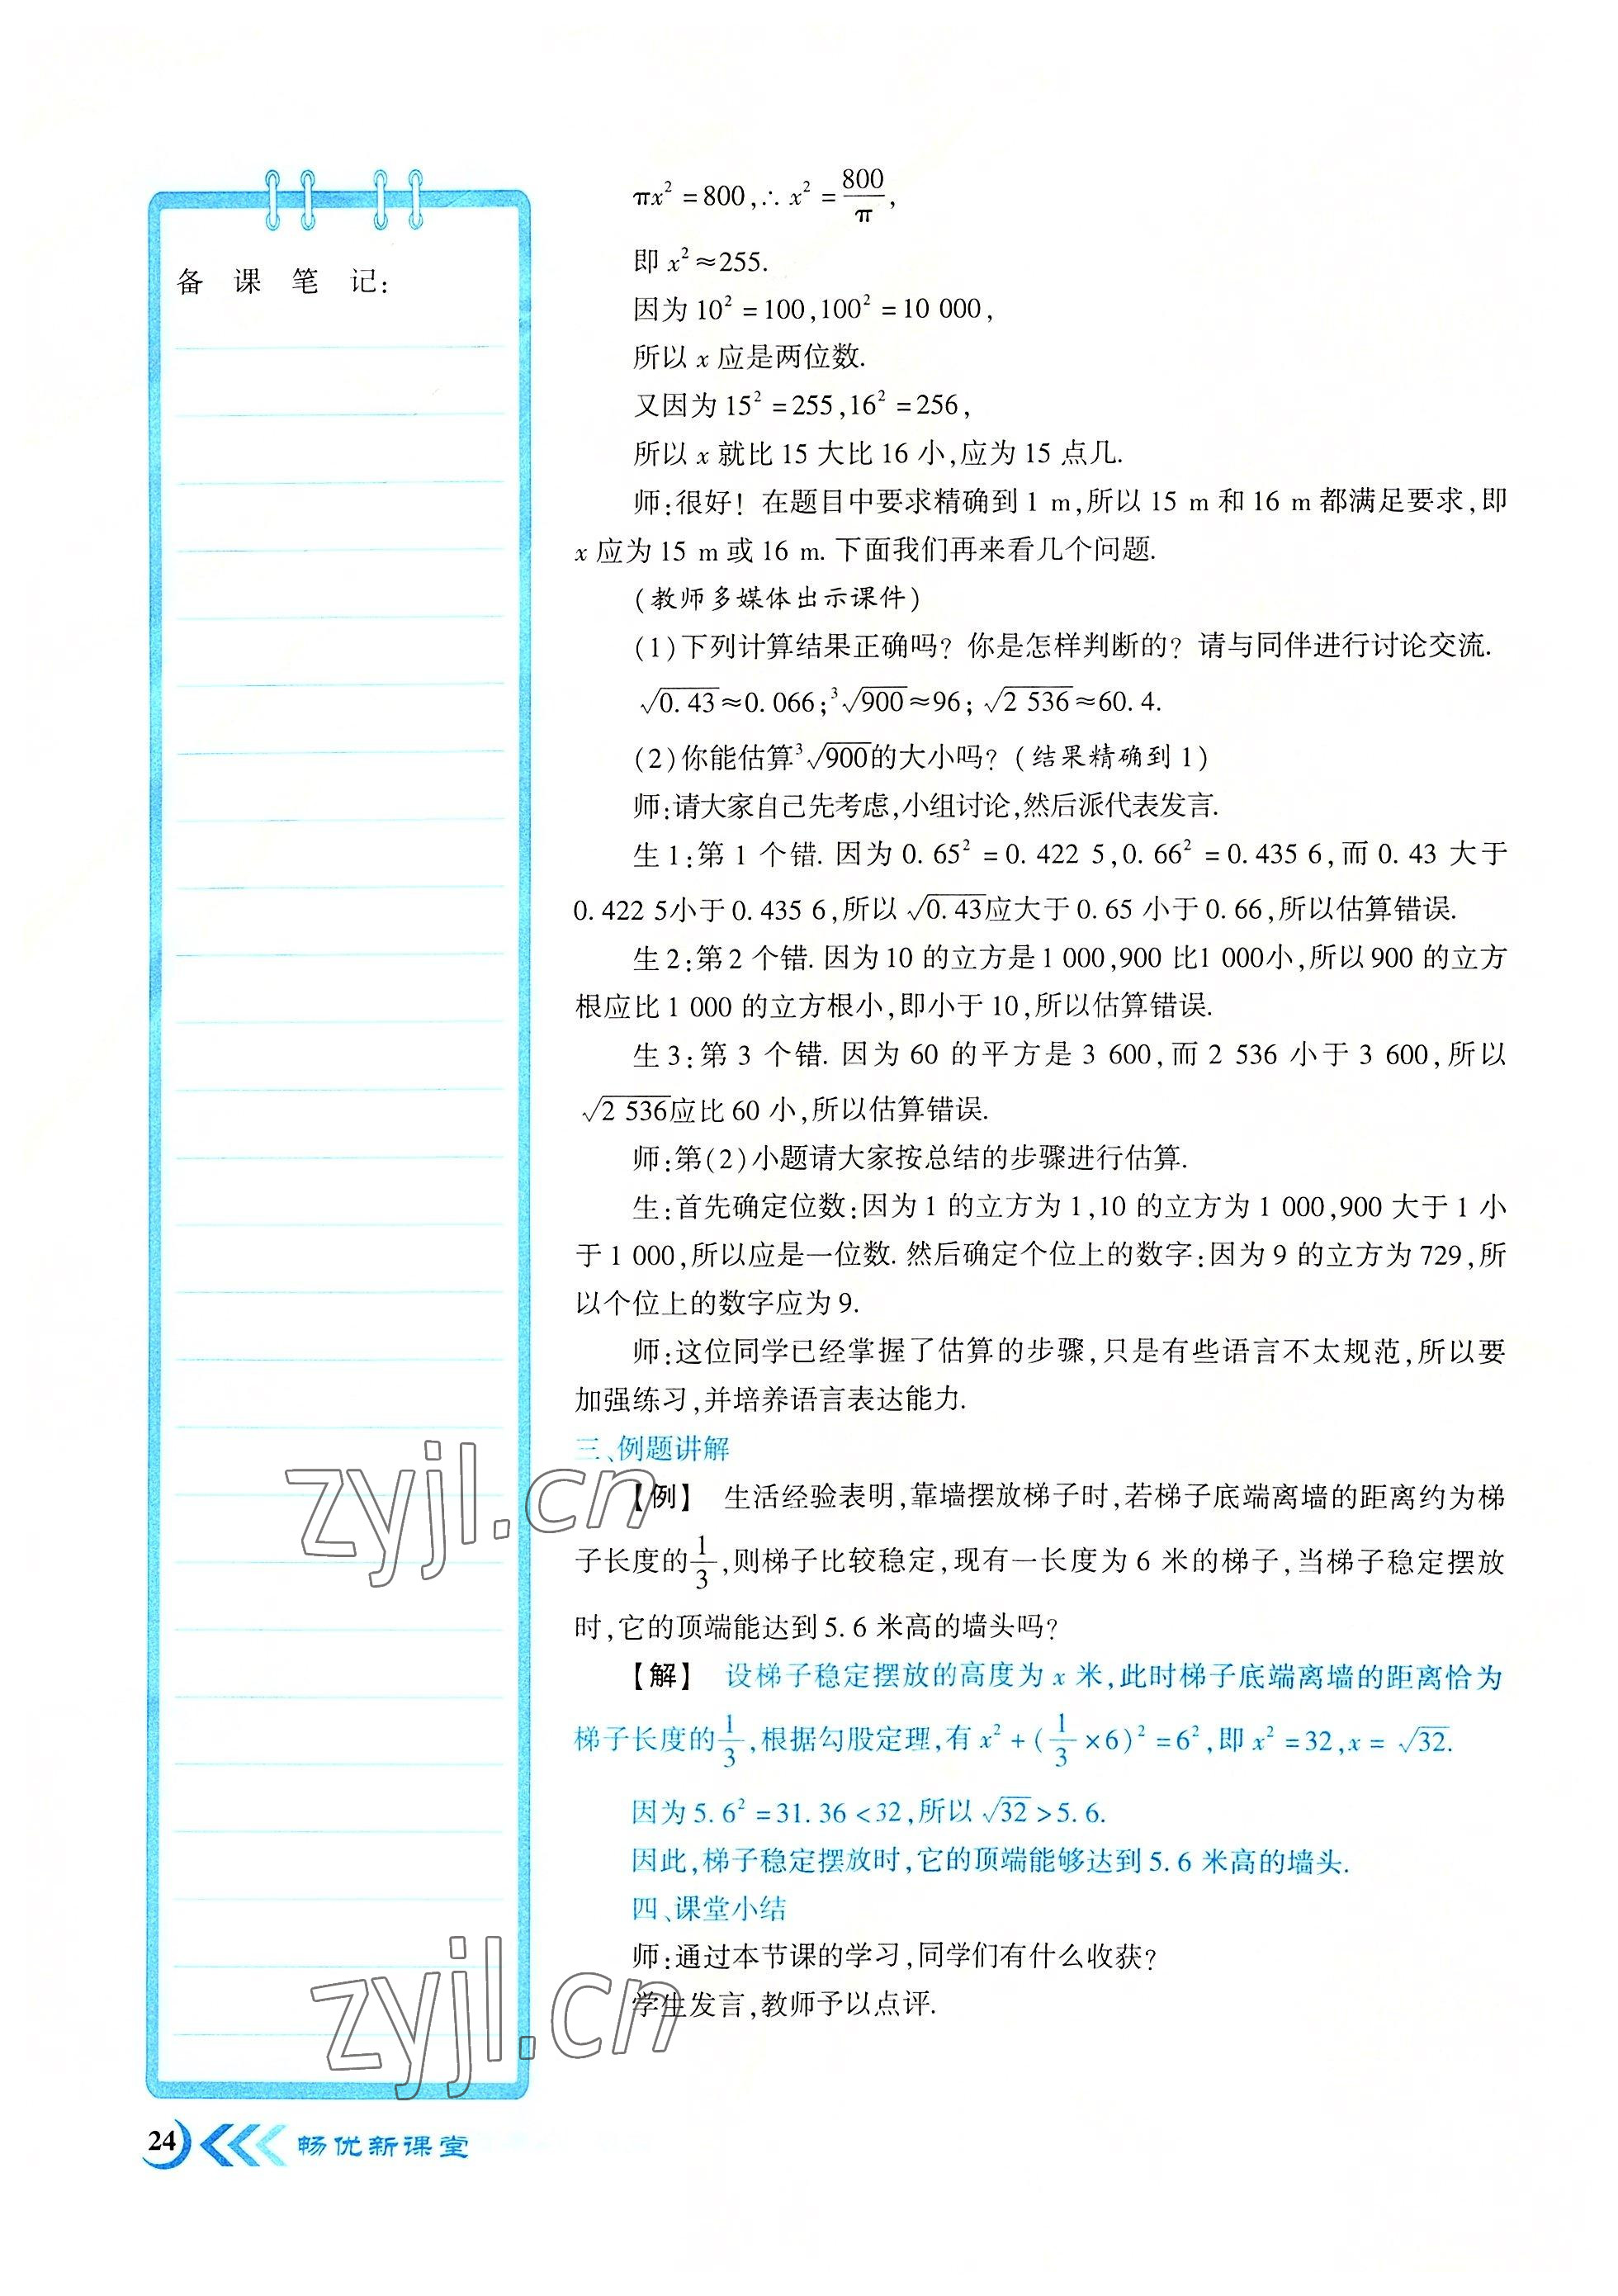 备 课 笔 记:
πx²=800,∴x²=800/π,
即x²≈255.
因为10²=100,100²=10 000,
所以x应是两位数.
又因为15²=255,16²=256,
所以x就比15大比16小,应为15点几.
师:很好! 在题目中要求精确到1 m,所以15 m和16 m都满足要求,即
x应为15 m或16 m. 下面我们再来看几个问题.
(教师多媒体出示课件)
(1)下列计算结果正确吗? 你是怎样判断的? 请与同伴进行讨论交流.
√0.43≈0.066;³√900≈96;√2 536≈60.4.
(2)你能估算³√900的大小吗? (结果精确到1)
师:请大家自己先考虑,小组讨论,然后派代表发言.
生1:第1个错. 因为0.65²=0.422 5,0.66²=0.435 6,而0.43大于
0.422 5小于0.435 6,所以√0.43应大于0.65小于0.66,所以估算错误.
生2:第2个错. 因为10的立方是1 000,900比1 000小,所以900的立方
根应比1 000的立方根小,即小于10,所以估算错误.
生3:第3个错. 因为60的平方是3 600,而2 536小于3 600,所以
√2 536应比60小,所以估算错误.
师:第(2)小题请大家按总结的步骤进行估算.
生:首先确定位数:因为1的立方为1,10的立方为1 000,900大于1小
于1 000,所以应是一位数. 然后确定个位上的数字:因为9的立方为729,所
以个位上的数字应为9.
师:这位同学已经掌握了估算的步骤,只是有些语言不太规范,所以要
加强练习,并培养语言表达能力.
三、例题讲解
【例】 生活经验表明,靠墙摆放梯子时,若梯子底端离墙的距离约为梯
子长度的1/3,则梯子比较稳定,现有一长度为6米的梯子,当梯子稳定摆放
时,它的顶端能达到5.6米高的墙头吗?
【解】 设梯子稳定摆放的高度为x米,此时梯子底端离墙的距离恰为
梯子长度的1/3,根据勾股定理,有x²+(1/3×6)²=6²,即x²=32,x=√32.
因为5.6²=31.36<32,所以√32>5.6.
因此,梯子稳定摆放时,它的顶端能够达到5.6米高的墙头.
四、课堂小结
师:通过本节课的学习,同学们有什么收获?
学生发言,教师予以点评.
zyjl.cn
zyjl.cn
24 畅优新课堂